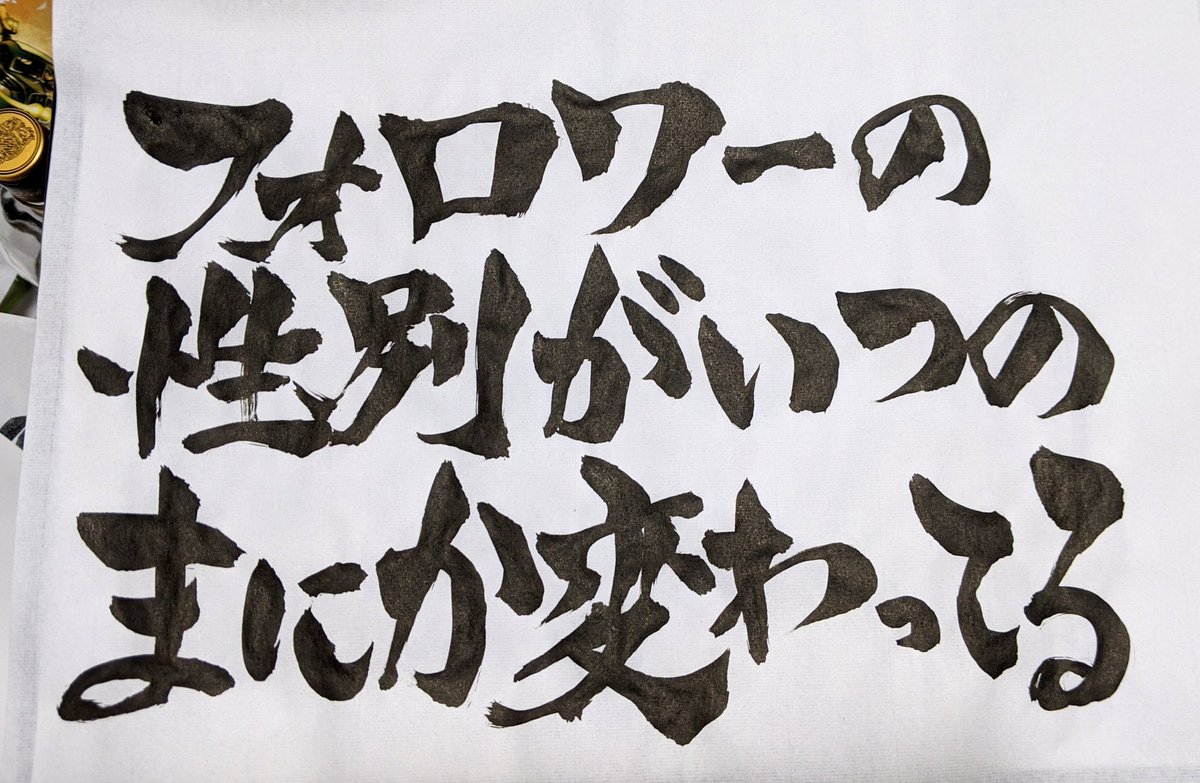 フォロワーの
性別がいつの
まにか変わってる